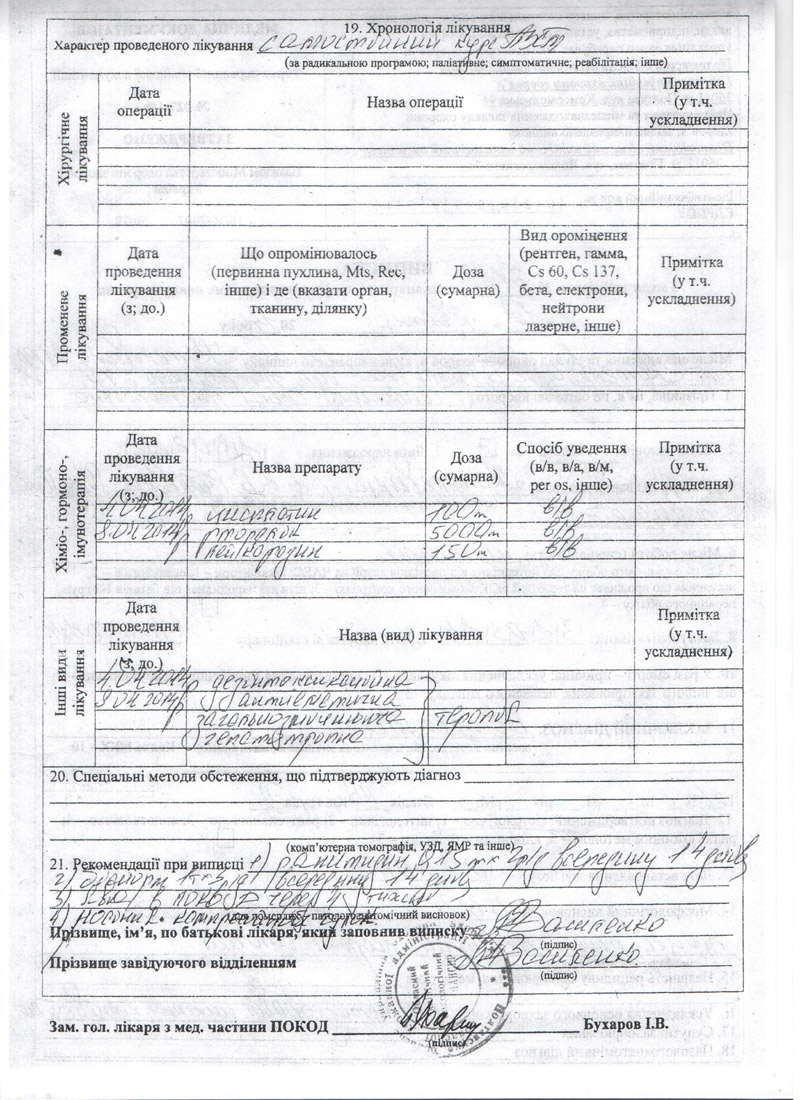 19. Хронологія лікування
Характер проведеного лікування самостійний курс ПХТ
(за радикальною програмою; паліативне; симптоматичне; реабілітація; інше)
Хірургічне лікування
Дата операції
Назва операції
Примітка (у т.ч. ускладнення)
Променеве лікування
Дата проведення лікування (з; до.)
Що опромінювалось (первинна пухлина, Mts, Rec, інше) і де (вказати орган, тканину, ділянку)
Доза (сумарна)
Вид оромінення (рентген, гамма, Cs 60, Cs 137, бета, електрони, нейтрони лазерне, інше)
Примітка (у т.ч. ускладнення)
Хіміо-, гормоно-, імунотерапія
Дата проведення лікування (з; до.)
Назва препарату
Доза (сумарна)
Спосіб уведення (в/в, в/а, в/м, per os, інше)
Примітка (у т.ч. ускладнення)
4.04.2014р цисплатин 100 в/в
8.04.2014р 5000 в/в
150 в/в
Інші види лікування
Дата проведення лікування (з; до.)
Назва (вид) лікування
Примітка (у т.ч. ускладнення)
4.04.2014р дезинтоксикаційна
8.04.2014р антиеметична
загальнозміцнююча
гепатотропна
терапія
20. Спеціальні методи обстеження, що підтверджують діагноз
(комп’ютерна томографія, УЗД, ЯМР та інше)
21. Рекомендації при виписці 1) ранитидин 0,15 т х 2р/д всередину 14 днів
2) всередину 14 днів
3) ПОКОД через 4 тижні
4) носіння
Прізвище, ім’я, по батькові лікаря, який заповнив виписку Василенко
(підпис)
Прізвище завідуючого відділенням Василенко
(підпис)
Зам. гол. лікаря з мед. частини ПОКОД Бухаров І.В.
(підпис)